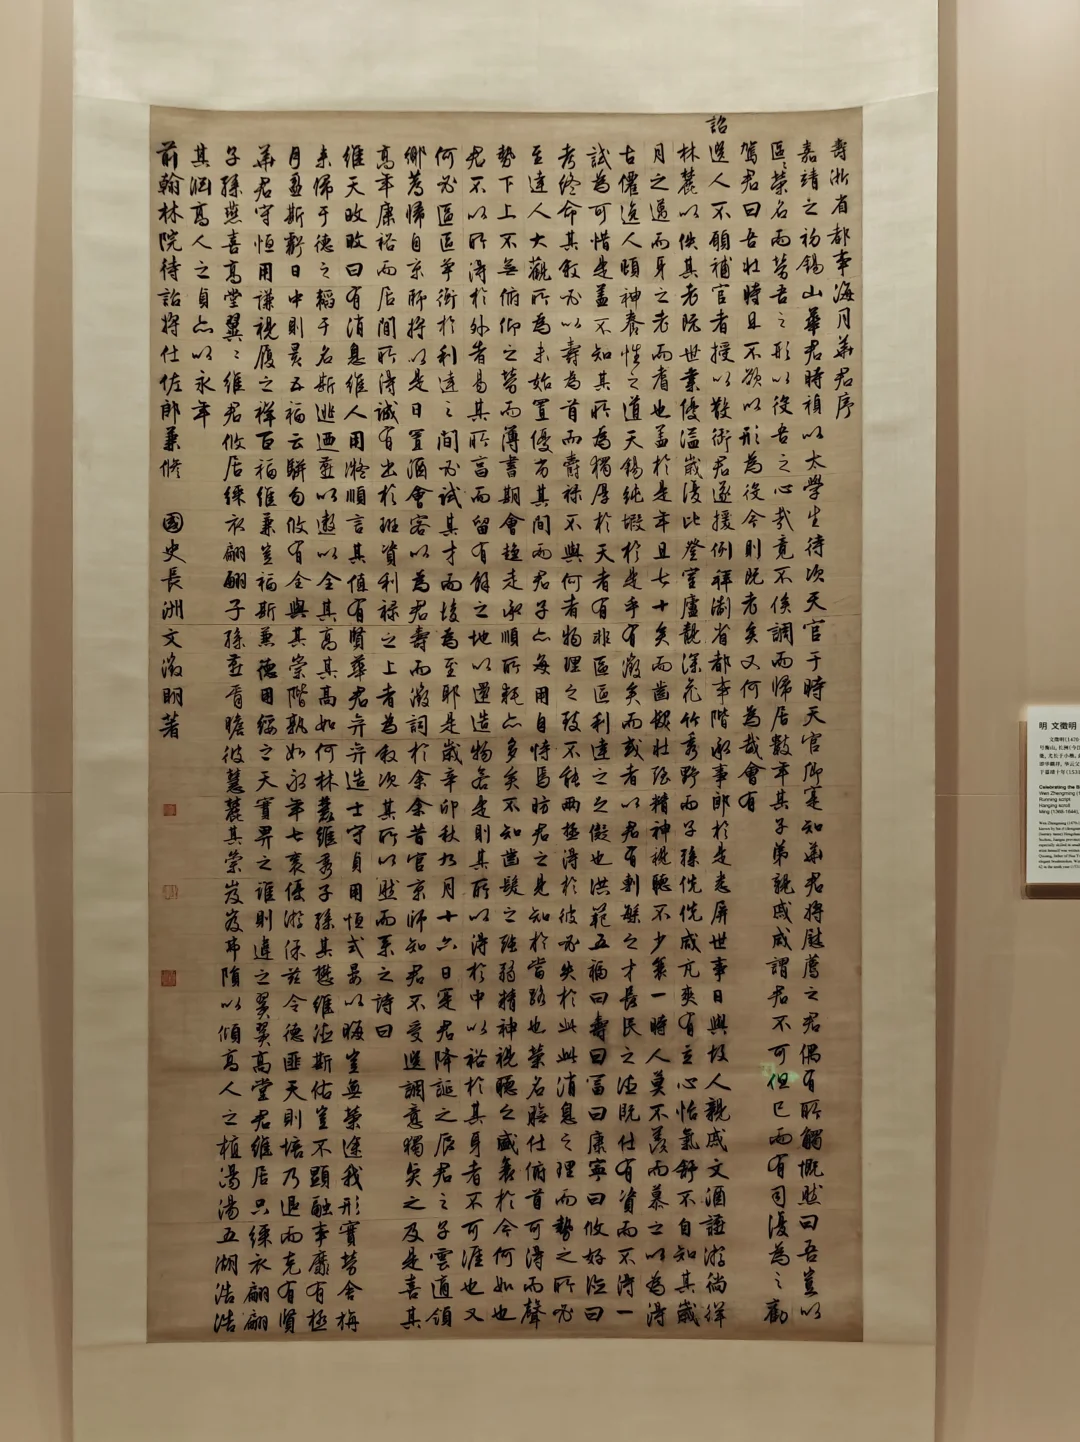 壽浙省都事海月華君序
嘉靖之初錫山華君時禎以太學生待次天官于時天官卿寔知華君將慰薦之君偶有所觸慨然曰吾豈以
區區榮名而勞吾之形以役吾之心哉竟不俟調而歸居數年其子弟親戚咸謂君不可但已而有司漫為之勸
駕君曰吾壯時且不欲以形為役今則既老矣又何為哉會有
詔選人不願補官者授以散銜君遂援例拜浙省都事階承事郎於是悉屏世事日與故人親戚文酒讌游徜徉
林麓以佚其老既世業優溢歲復比登室廬靚深花竹秀野而子孫侁侁咸亢爽有立心怡氣舒不自知其歲
月之邁而身之老而耆也蓋於是年且七十矣而齒髮壯強精神視聽不少衰一時人莫不羨而慕之以為得
古僊逸人頤神養性之道天錫純嘏於是乎有徵矣而或者以君有剸繁之才長民之德既仕有資而不得一
試為可惜是蓋不知其所為獨厚於天者有非區區利達之之儗也洪範五福曰壽曰富曰康寧曰攸好德曰
考終命其敘必以壽為首而爵祿不與何者物理之致不能兩極得於彼必失於此此消息之理而勢之所必
至達人大觀所為未始置優劣其間而君子亦每用自恃焉昉君之見知於當路也榮名膴仕俯首可得而聲
勢下上不無俯仰之勞而薄書期會趨走承順所耗亦多矣不知齒髮之強弱精神視聽之盛衰於今何如也
君不以所得於外者易其所富而留有餘之地以還造物者是則其所以得於中以裕於其身者不可涯也又
何必區區爭衒於利達之間必試其才而後為至耶是歲辛卯秋九月十六日寔君降誕之辰君之子雲適領
鄉薦歸自京師將以是日置酒會客以為君壽而徵詞於余余昔官京師知君不受選調意獨矣之及是喜其
高年康裕而居閒所得誠有出於班資利祿之上者為敘次其所以然而系之詩曰
維天畋畋曰有消息維人用濟順言其值有賢華君弁弁造士守貞用恒式晏以晦豈無榮途我形實勞舍旃
來歸于德之韜于名斯逃迺蓺以遨以全其高其高如何林麓維秀子孫其懋維德斯佑豈不顯融事靡有極
月盈斯虧日中則昃五福云駢匄攸有令與其崇階孰如永年七袠優游保茲令德匪天則培乃退而克有賢
華君守恒用謙視履之祥百福維兼豈福斯兼德用綏之天實畀之誰則違之翼翼高堂君維居只綵衣翩翩
子孫燕喜高堂翼翼維君攸居綵衣翩翩子孫蓺胥瞻彼慧麓其崇岌岌弗隕以傾高人之植湯湯五湖浩浩
其淵高人之貞亦以永年
前翰林院待詔將仕佐郎兼修 國史長洲文徵明著
明 文徵明
Running script
Hanging scroll